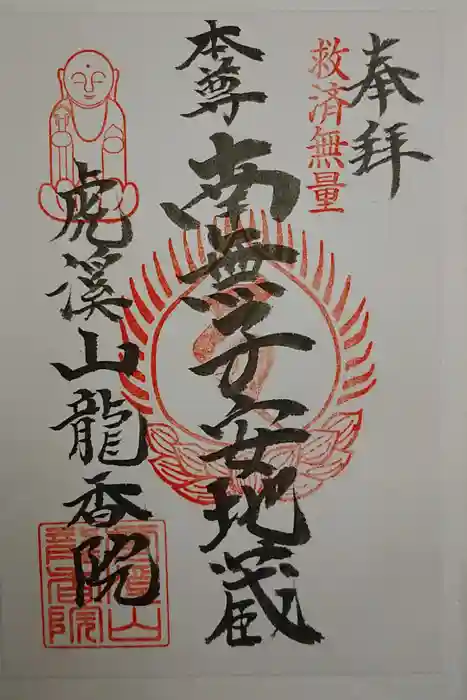 奉拝
救済無量
本尊
南無子安地蔵
虎溪山龍香院